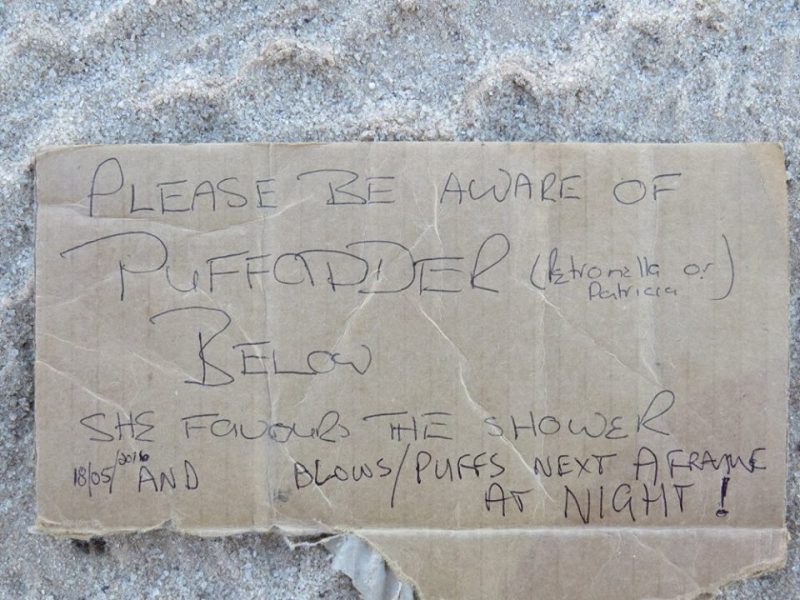 PLEASE BE AWARE OF
PUFFADDER (Petronella or
Patricia)
BELOW
SHE FAVOURS THE SHOWER
18/05/2016 AND BLOWS/PUFFS NEXT A FRAME
AT NIGHT!